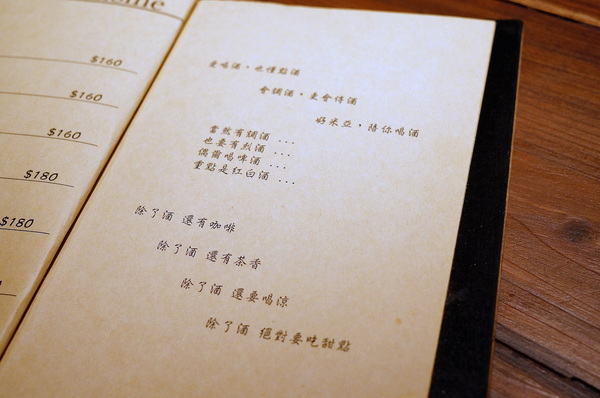 $160
$160
$160
$180
$180
愛喝酒，也懂點酒
會調酒，更會侍酒
好米亞，陪你喝酒
當然有調酒 ...
也要有烈酒 ...
偶爾喝啤酒 ...
重點是紅白酒 ...
除了酒 還有咖啡
除了酒 還有茶香
除了酒 還要喝涼
除了酒 絕對要吃甜點